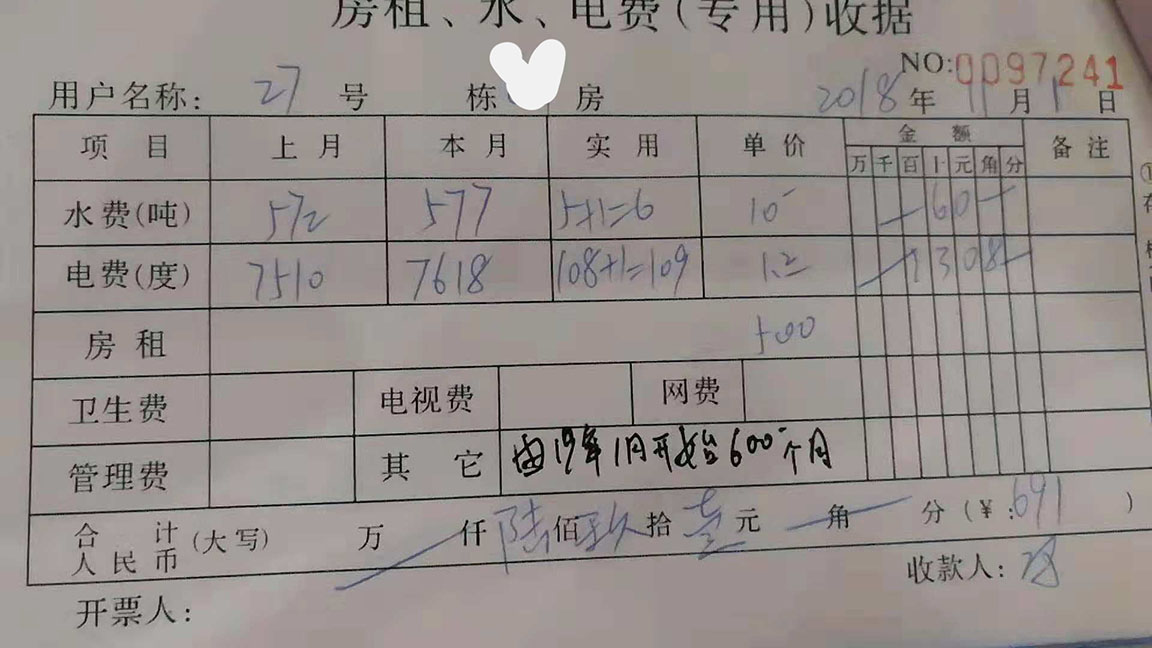 房租、水、电费(专用)收据
NO:0097241
用户名称: 27 号 栋 房 2018 年 11 月 1 日
项目 上月 本月 实用 单价 金额 备注
万 千 百 十 元 角 分
水费(吨) 572 577 5+1=6 10 60
电费(度) 7510 7618 108+1=109 1.2 1308
房租 500
卫生费 电视费 网费
管理费 其它 由19年1月开始600一个月
合计人民币(大写) 万 仟 陆 佰 玖 拾 壹 元 角 分(¥:691)
收款人:
开票人: